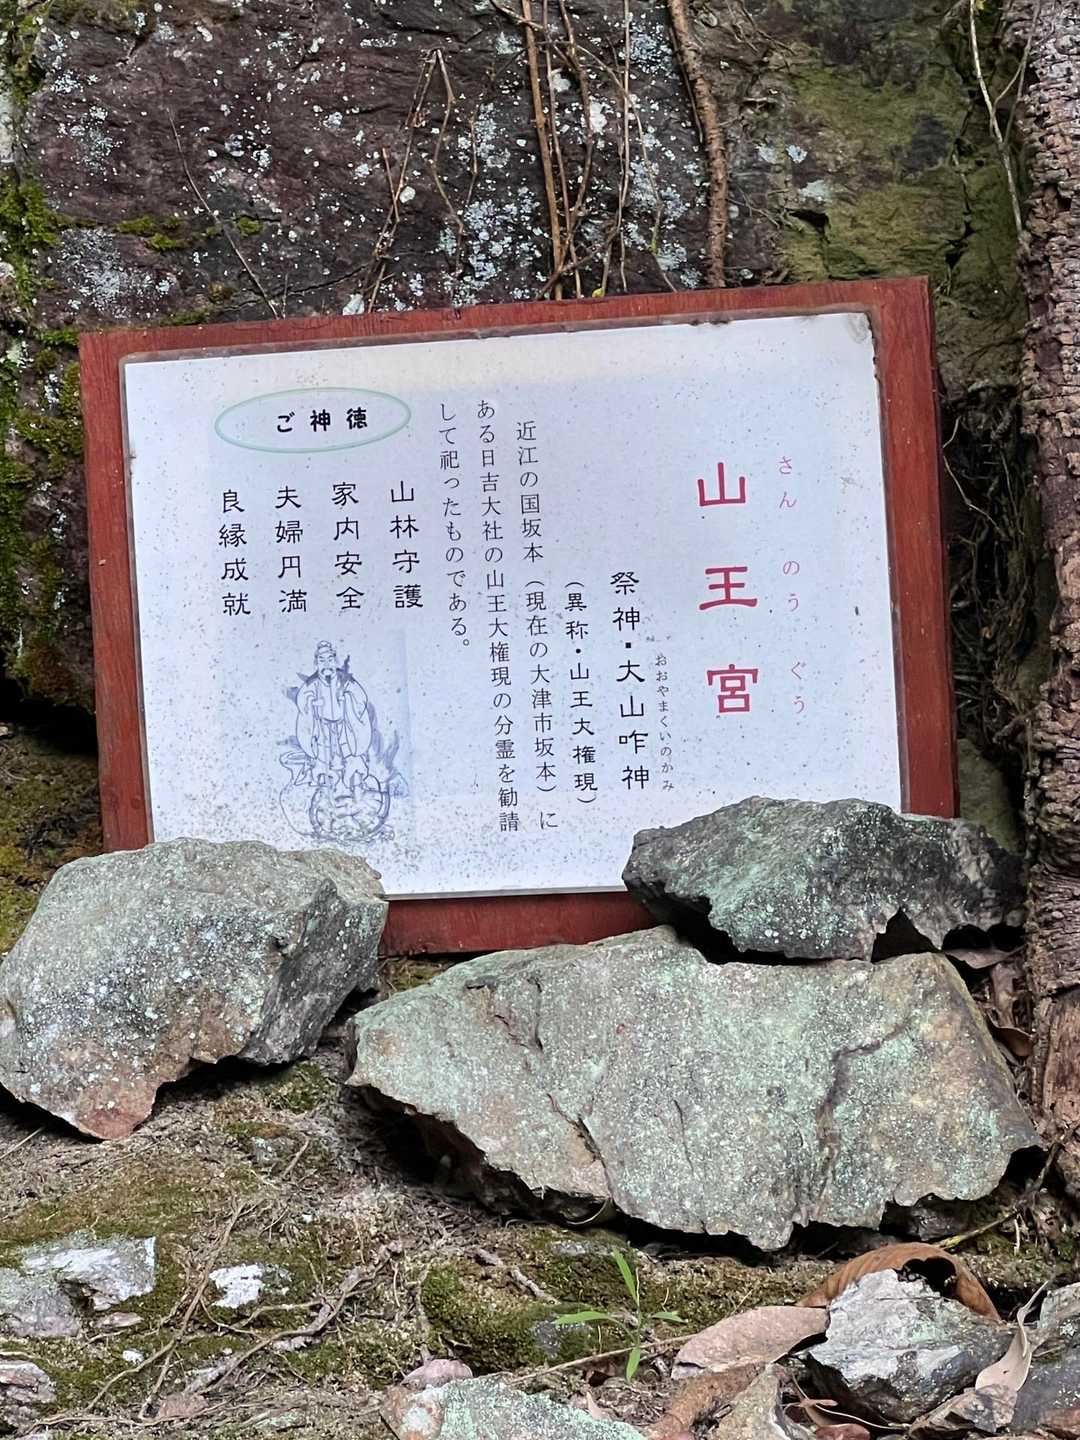 さんのうぐう
山王宮
祭神・大山咋神
おおやまくいのかみ
(異称・山王大権現)
近江の国坂本(現在の大津市坂本)に
ある日吉大社の山王大権現の分霊を勧請
して祀ったものである。
ご神徳
山林守護
家内安全
夫婦円満
良縁成就